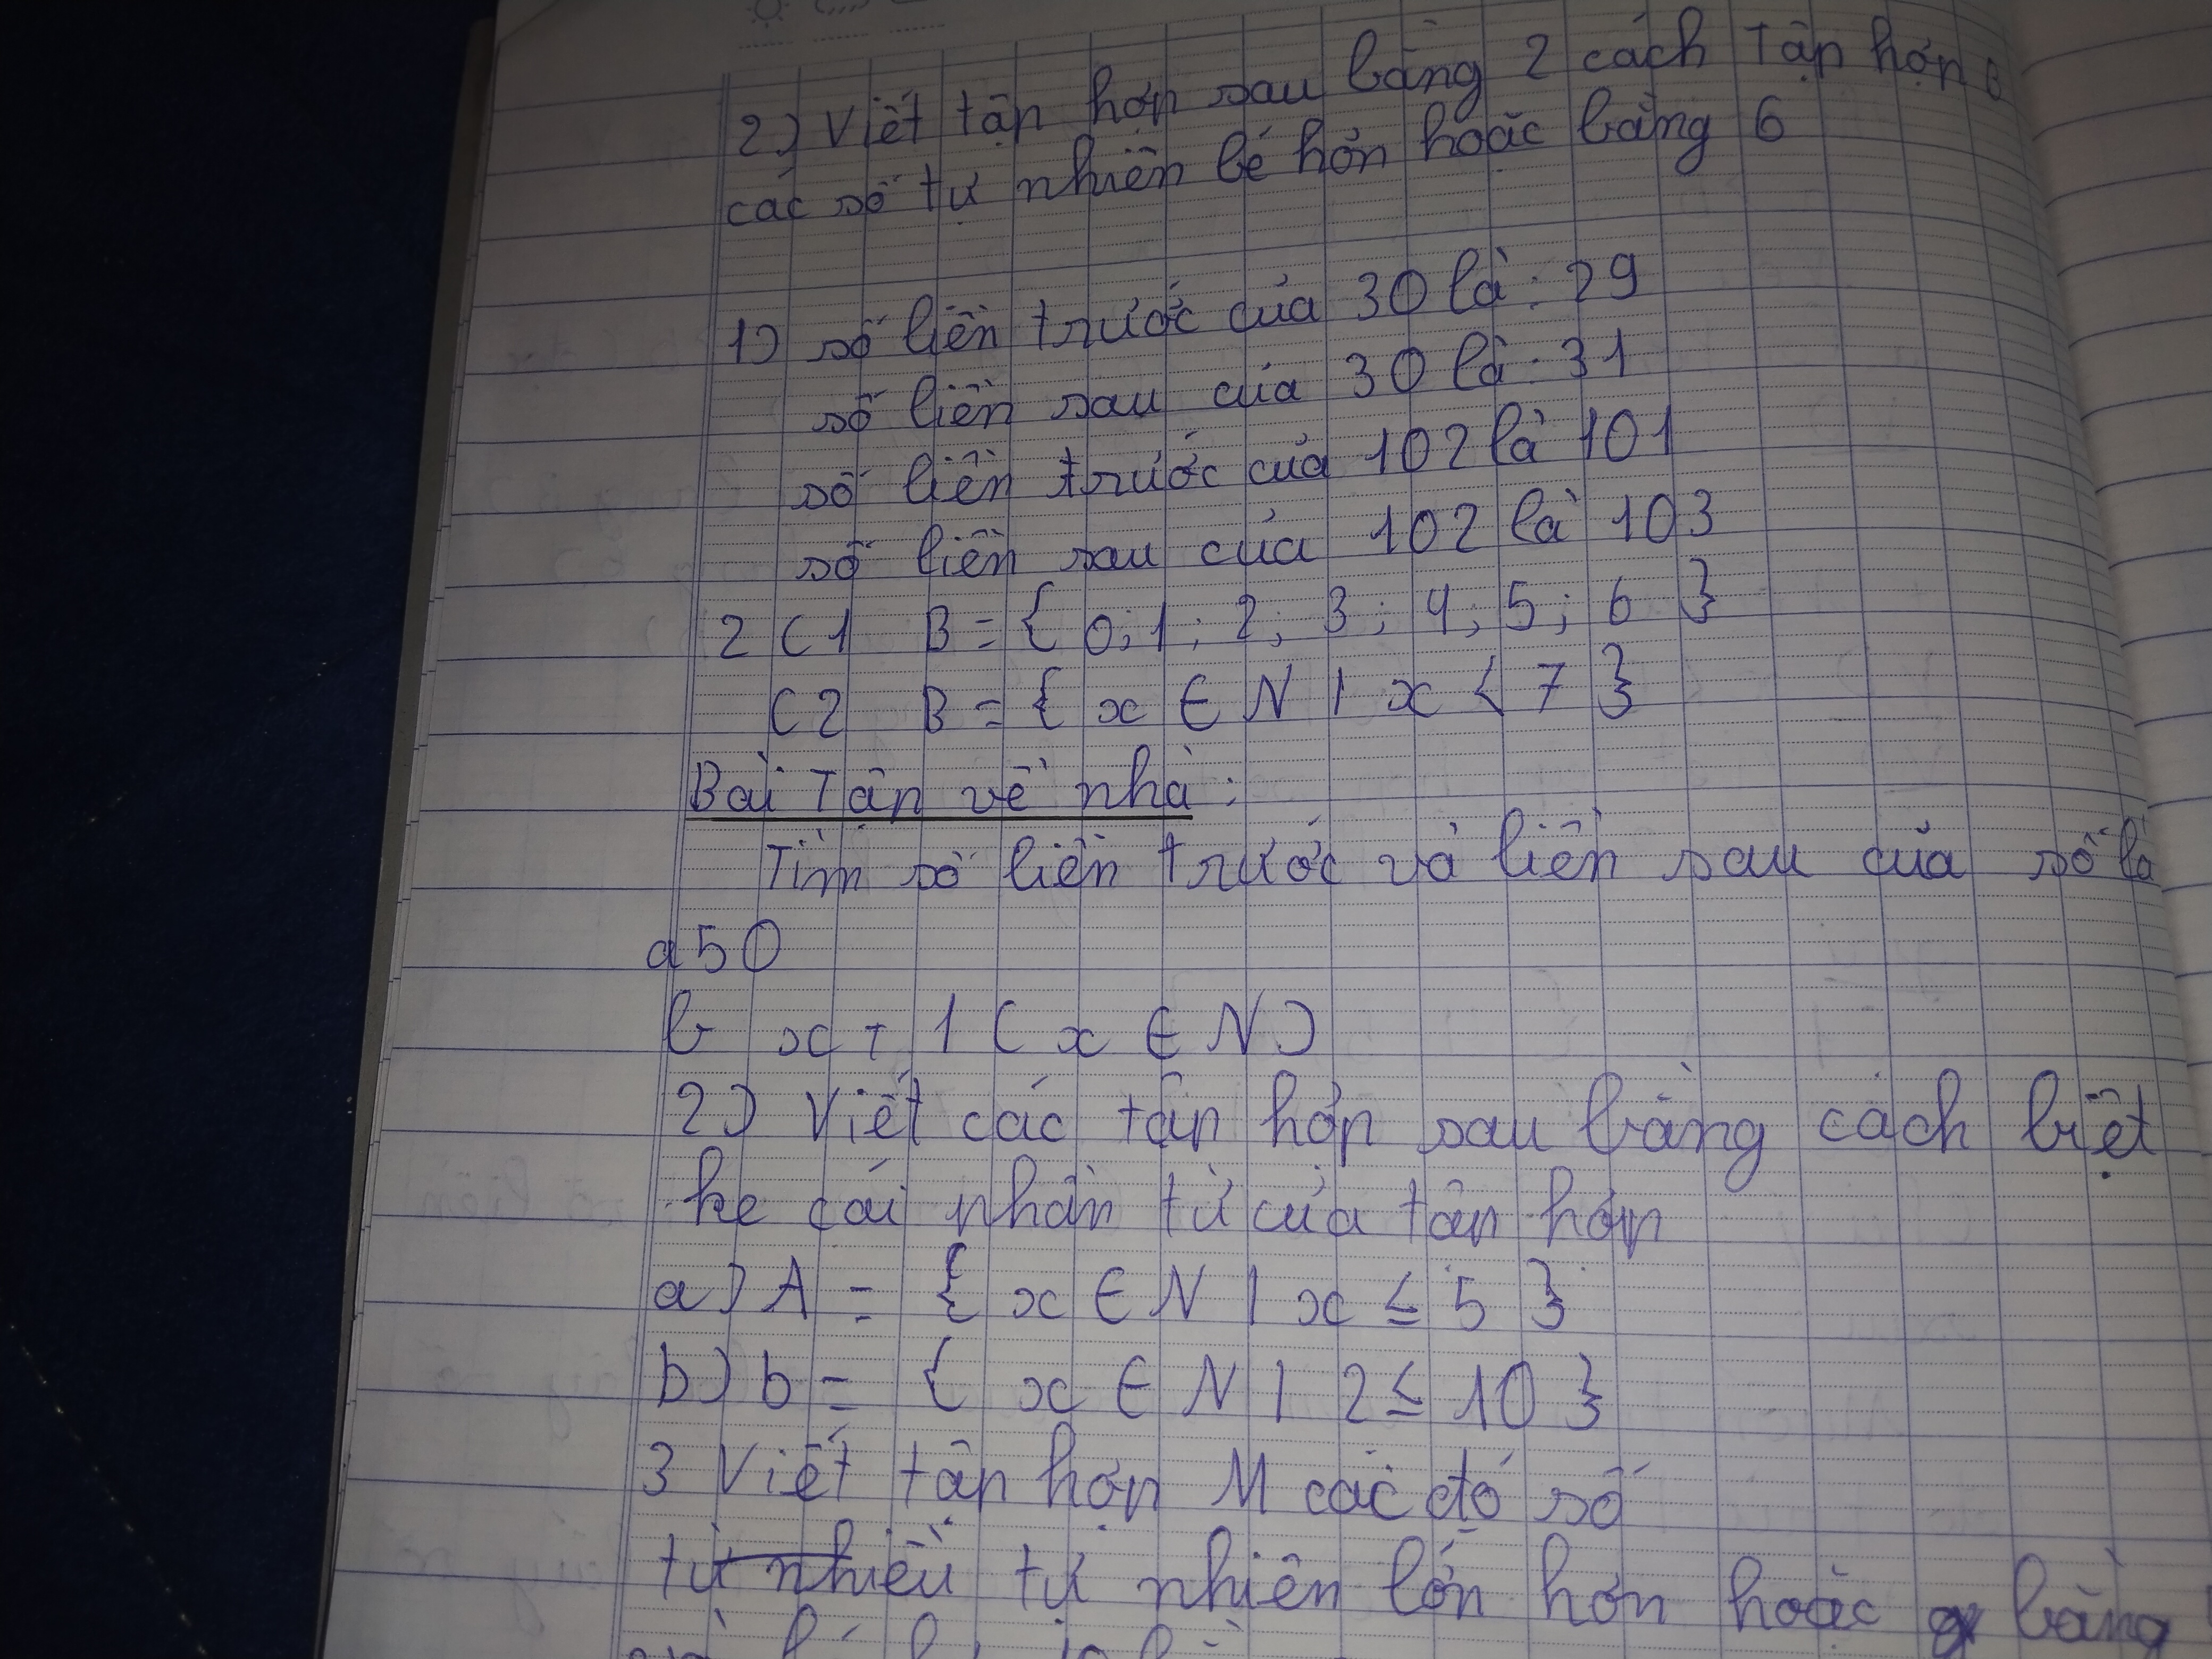 2) Viết tập hợp sau bằng 2 cách Tập hợp B
các số tự nhiên bé hơn hoặc bằng 6
1) số liền trước của 30 là : 29
số liền sau của 30 là : 31
số liền trước của 102 là 101
số liền sau của 102 là 103
2 C1 B = { 0; 1 ; 2; 3 ; 4; 5; 6 }
C2 B = { x ∈ N | x < 7 }
Bài Tập về nhà :
Tìm số liền trước và liền sau của số là
a 50
b x + 1 ( x ∈ N )
2) Viết các tập hợp sau bằng cách biệt
ke cái nhân tử của tập hợp
a) A = { x ∈ N | x ≤ 5 }
b) b = { x ∈ N | 2 ≤ 10 }
3 Viết tập hợp M các đó số
tự nhiều tự nhiên lớn hơn hoặc bằng